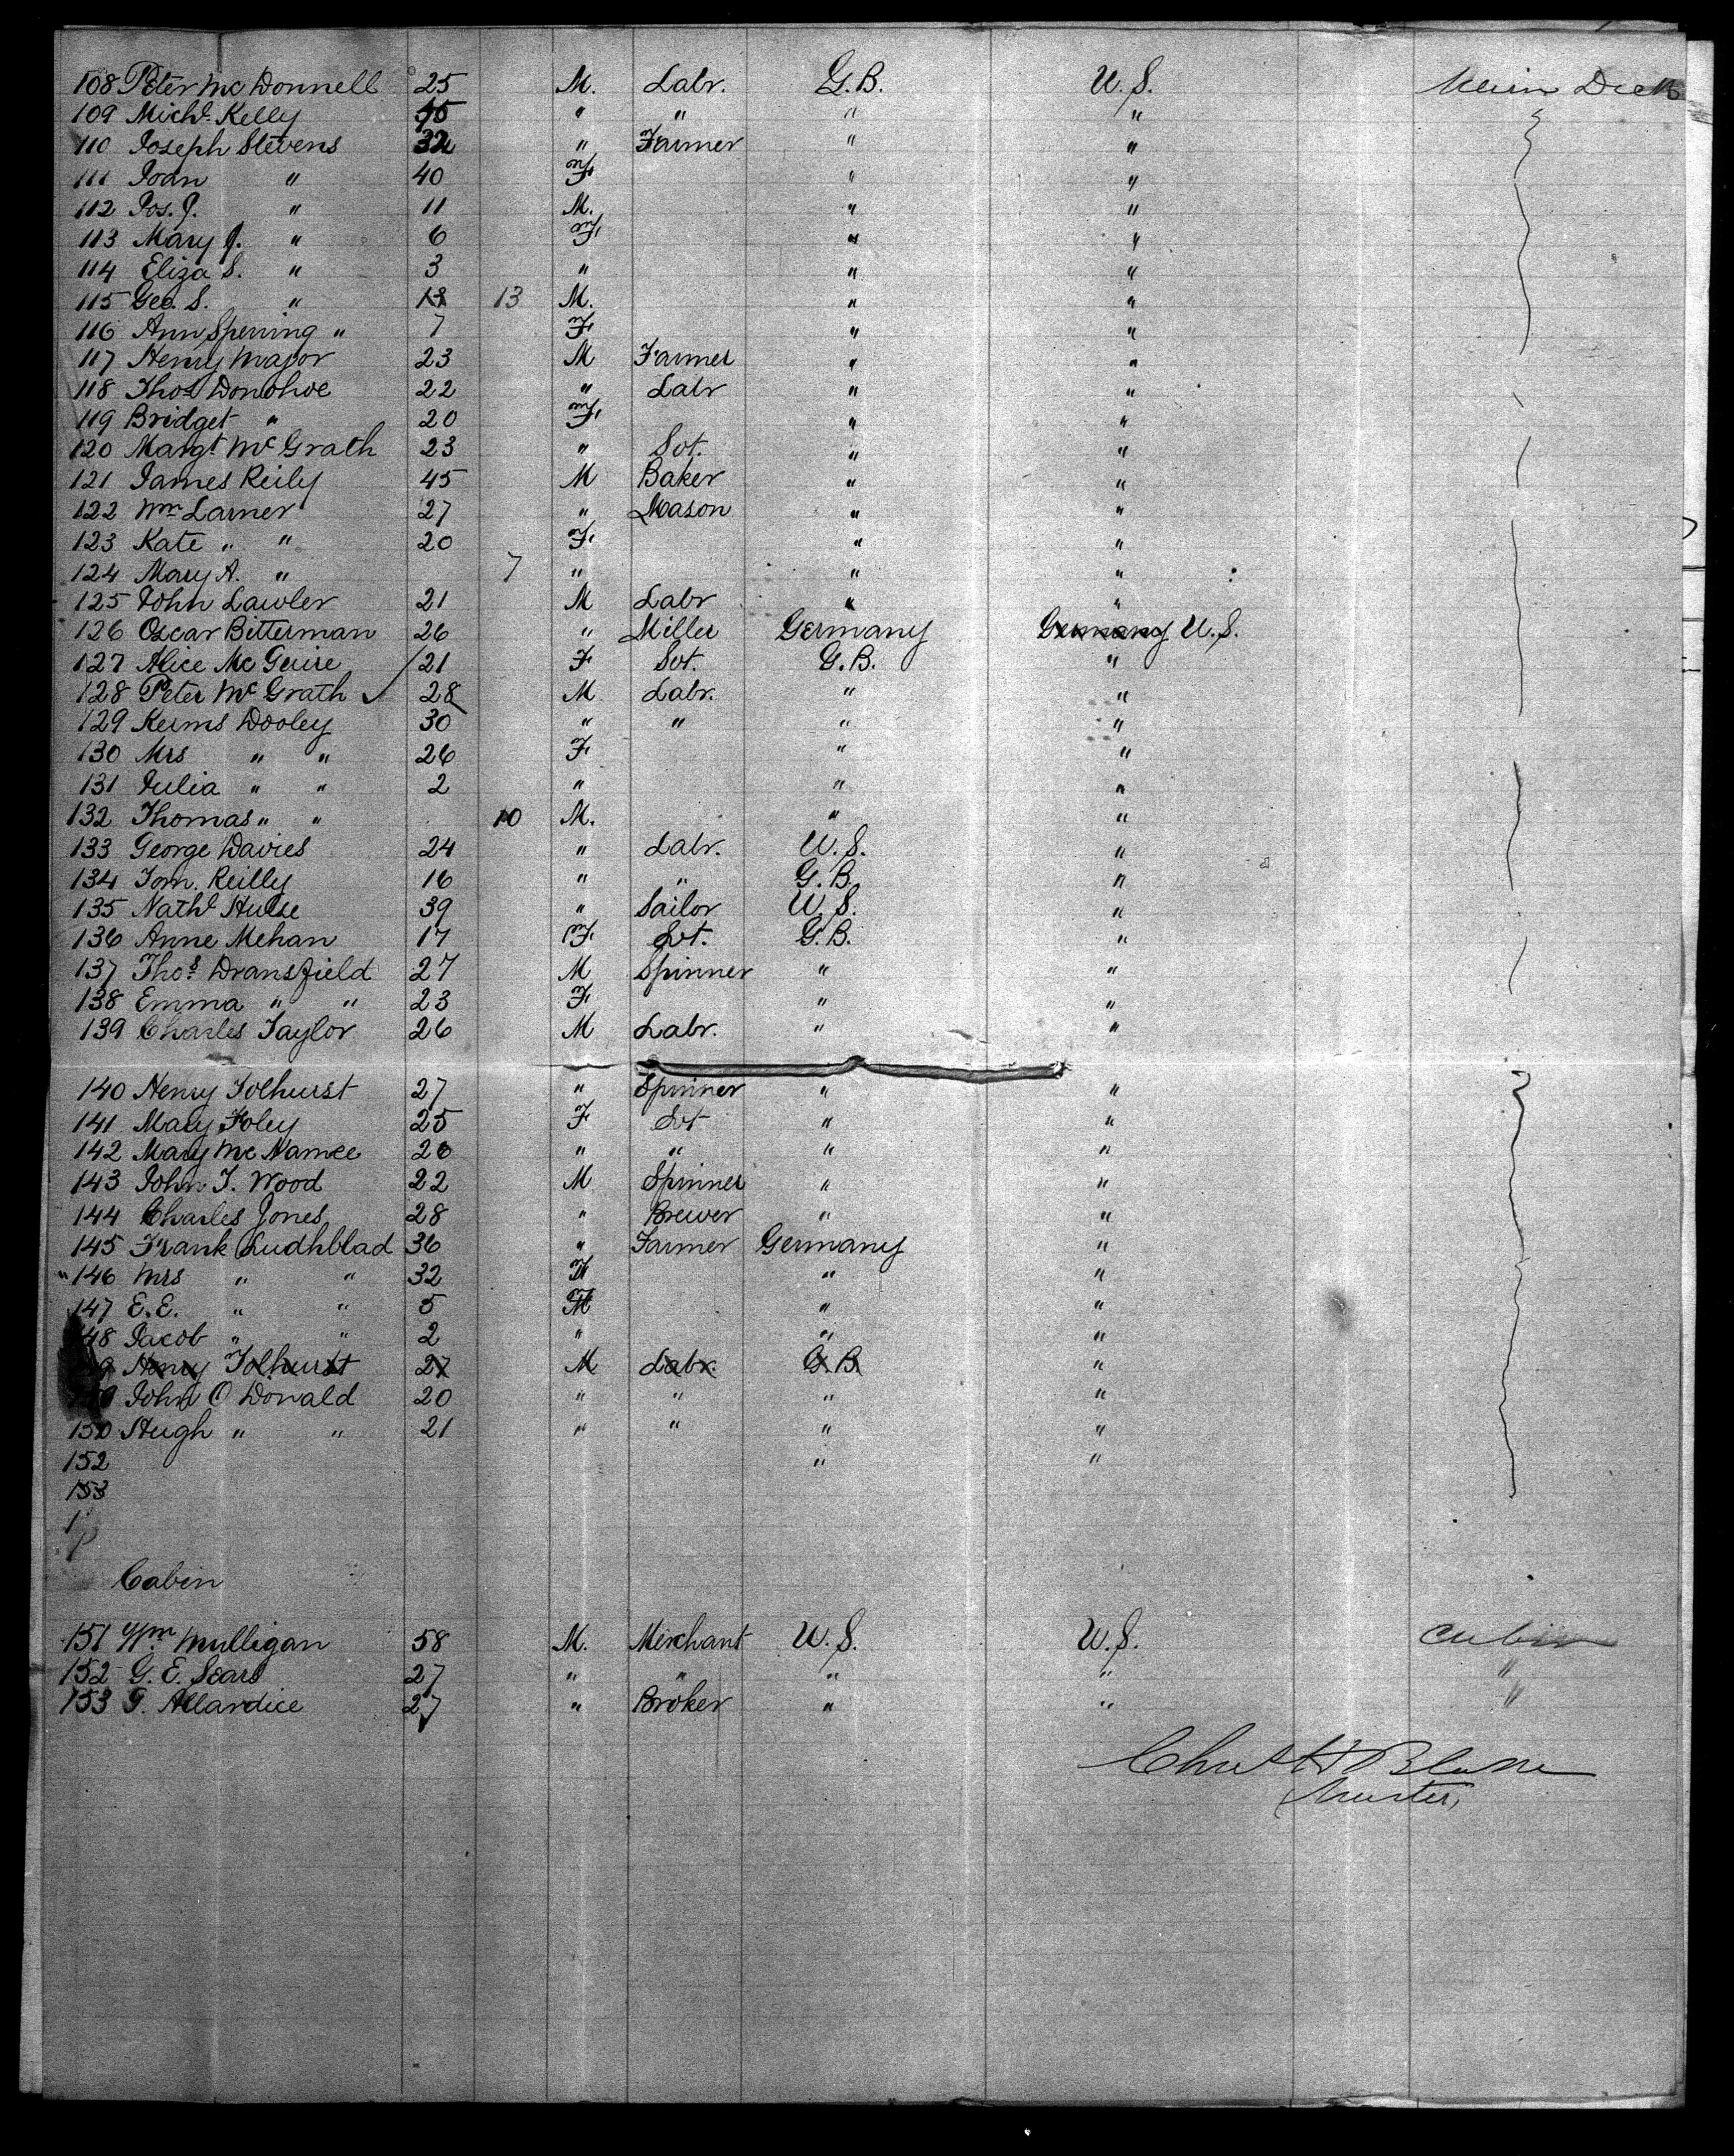 108 Peter McDonnell 25 M. Labr. G.B. U.S. Main Deck
109 Michl. Kelly 45 " " " "
110 Joseph Stevens 32 " Farmer " "
111 Joan " 40 F " "
112 Jos. J. " 11 M. " "
113 Mary J. " 6 F " "
114 Eliza S. " 3 " " "
115 Geo. S. " 13 M. " "
116 Ann Sperring " 7 F " "
117 Henry Major 23 M Farmer " "
118 Thos Donohoe 22 " Labr " "
119 Bridget " 20 F " "
120 Margt McGrath 23 " Svt. " "
121 James Reily 45 M Baker " "
122 Wm Larner 27 " Mason " "
123 Kate " " 20 F " "
124 Mary A. " 7 " " "
125 John Lawler 21 M Labr " "
126 Oscar Bitterman 26 " Miller Germany Germany U.S.
127 Alice McGuire 21 F Svt. G.B. "
128 Peter McGrath ✓ 28 M Labr. " "
129 Dooley 30 " " " "
130 Mrs " " 26 F " "
131 Julia " " 2 " " "
132 Thomas " " 10 M. " "
133 George Davies 24 " Labr. U.S. "
134 Tom. Reilly 16 " " G.B. "
135 Nathl Hulse 39 " Sailor U.S. "
136 Anne Mehan 17 F Svt. G.B. "
137 Thos. Dransfield 27 M Spinner " "
138 Emma " " 23 F " "
139 Charles Taylor 26 M Labr. " "
140 Henry Tolhurst 27 " Spinner " "
141 Mary Foley 25 F Svt " "
142 Mary McNamee 26 " " " "
143 John T. Wood 22 M Spinner " "
144 Charles Jones 28 " Brewer " "
145 Frank Ludhblad 36 " Farmer Germany "
146 Mrs " " 32 F " "
147 E.E. " " 5 M " "
148 Jacob " " 2 " " "
149 Henry Tolhurst 27 M Labr. G.B. "
John O Donald 20 " " " "
150 Hugh " " 21 " " " "
152 " "
153
Cabin
151 Wm. Mulligan 58 M. Merchant U.S. U.S. Cabin
152 G. E. Sears 27 " " " " "
153 G. Allardice 27 " Broker " " "
Master,